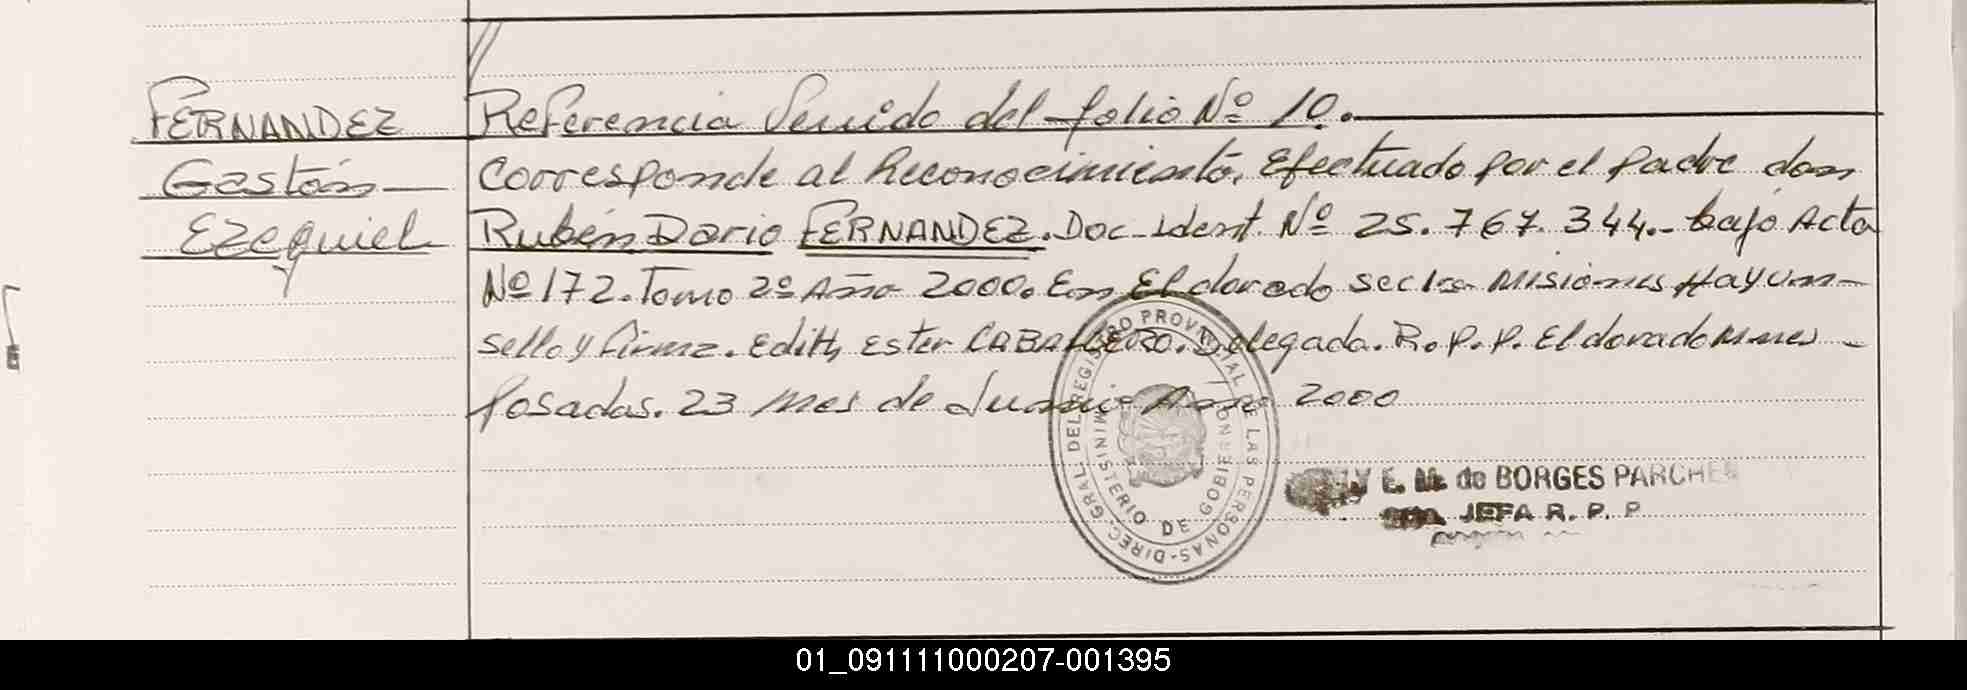 FERNANDEZ
Gastón
Ezequiel
Referencia Venido del folio Nº 10.
Corresponde al Reconocimiento. Efectuado por el padre don
Rubén Dario FERNANDEZ. Doc. Ident. Nº 25.767.344.- bajo Acta
Nº 172. Tomo 2º Año 2000. En Eldorado Misiones Hay un
sello y firma. Edith Ester CABALLERO. Delegada. R.P.P. Eldorado Mnes
Posadas. 23 Mes de Junio Año 2000
DIREC. GRAL. DEL REGISTRO PROVINCIAL DE LAS PERSONAS
MINISTERIO DE GOBIERNO
MISIONES
E. M. de BORGES PARCHEN
JEFA R. P. P
01_091111000207-001395